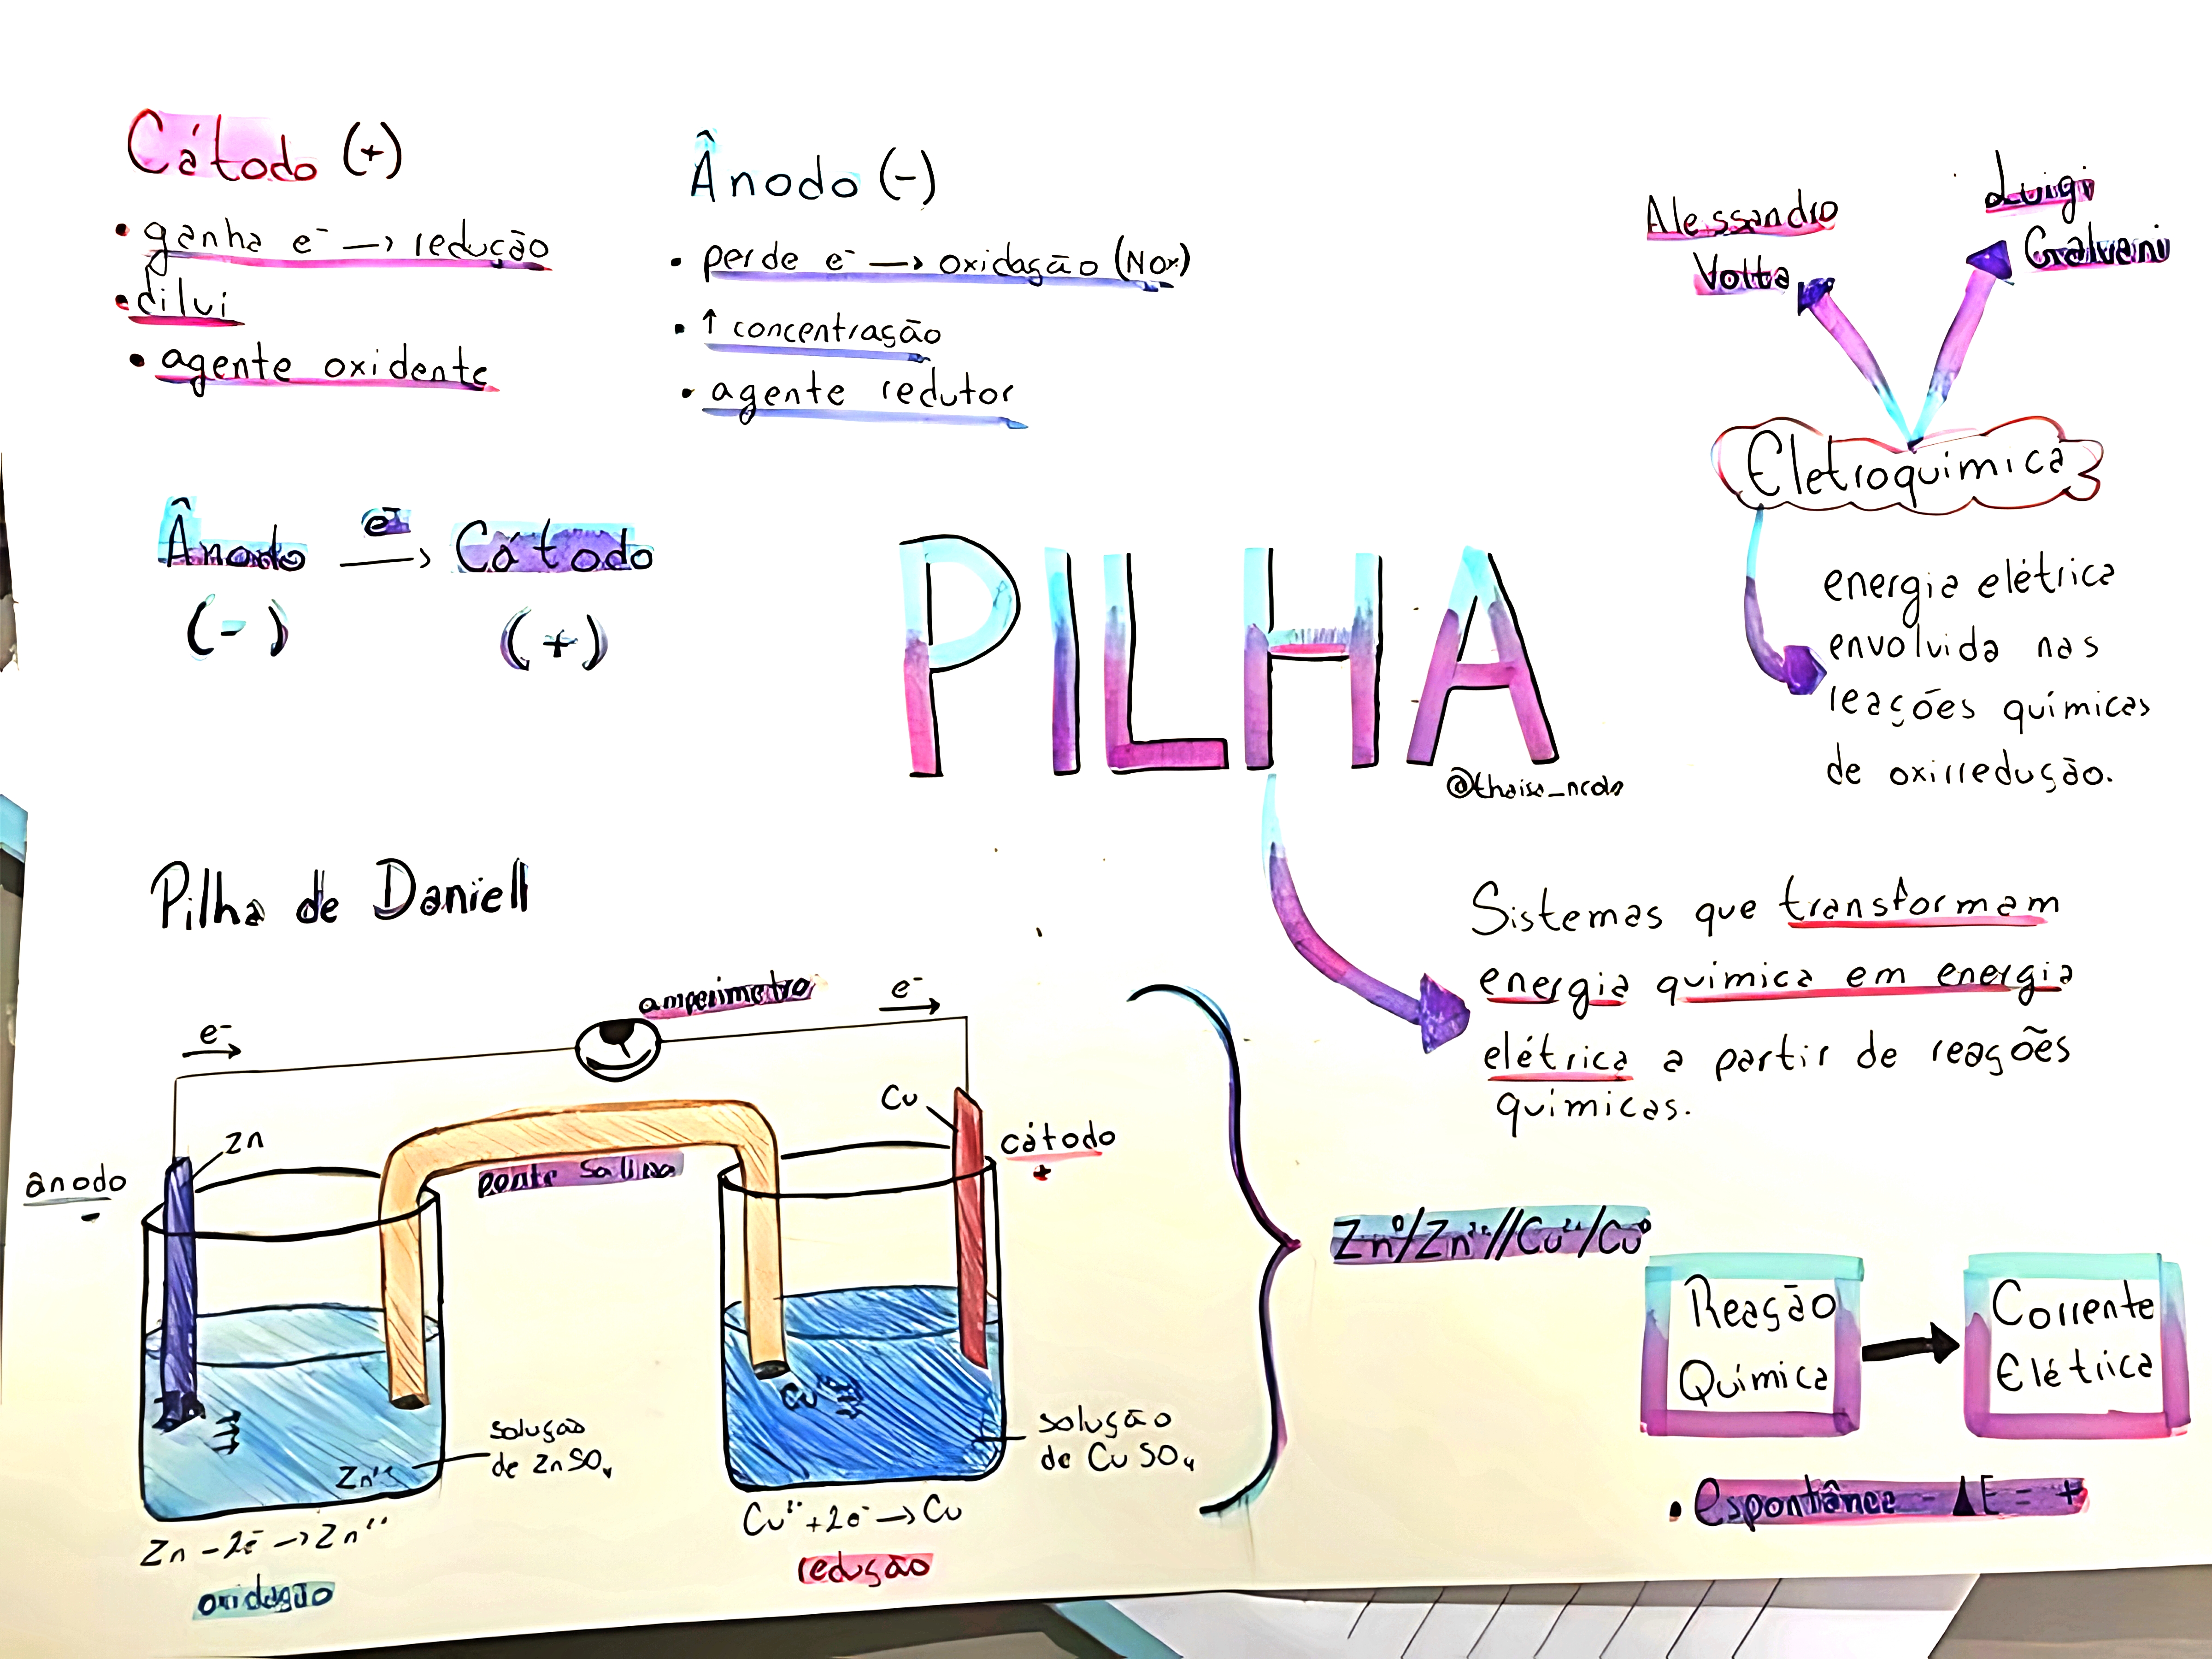 Cátodo (+)
• ganha e⁻ → redução
• dilui
• agente oxidente
Ânodo (-)
• perde e⁻ → oxidação (Nox)
• ↑ concentração
• agente redutor
Alessandro
Volta
Luigi
Galvani
Eletroquímica
energia elétrica
envolvida nas
reações químicas
de oxirredução.
Ânodo e⁻ → Cátodo
(-) (+)
PILHA
Sistemas que transformam
energia química em energia
elétrica a partir de reações
químicas.
Pilha de Daniell
amperímetro
e⁻ →
e⁻ →
Zn
ânodo
-
ponte salina
Cu
cátodo
+
Cu²⁺
Zn²⁺
solução
de ZnSO₄
solução
de CuSO₄
Zn - 2e⁻ → Zn²⁺
oxidação
Cu²⁺ + 2e⁻ → Cu
redução
Zn⁰/Zn²⁺//Cu²⁺/Cu⁰
Reação
Química
→
Corrente
Elétrica
• espontânea - ΔE = +